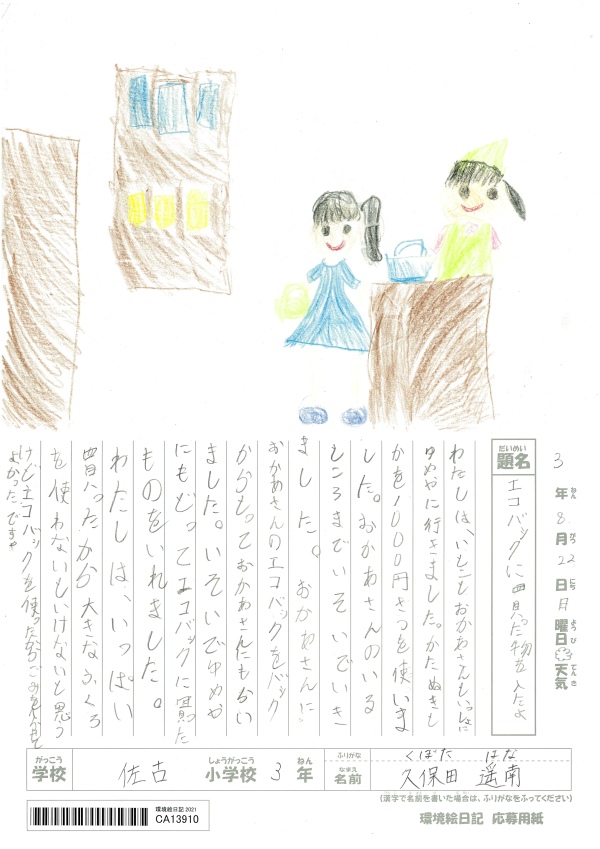 3年8月22日月曜日天気
ねん がつ にち ようび てんき
だいめい
題名
エコバックに買った物を入たよ
わたしは、いとことおかあさんといっしょに
ゆめやに行きました。かたぬきし
かを1000円さつを使いま
した。おかあさんのいる
ところまでいそいでいき
ました。おかあさんに
おかあさんのエコバックをバック
からもっておかあさんにもらい
ました。いそいでゆめや
にもどってエコバックに買った
ものをいれました。
わたしは、いっぱい
買ったから大きなふくろ
を使わないといけないと思う
けどエコバックを使ったからごみを
よかったですや
がっこう
学校
佐古
しょうがっこう
小学校
3
ねん
年
ふりがな
くぼた はな
なまえ
名前
久保田 遥南
(漢字で名前を書いた場合は、ふりがなをふってください)
環境絵日記 2021
CA13910
環境絵日記 応募用紙